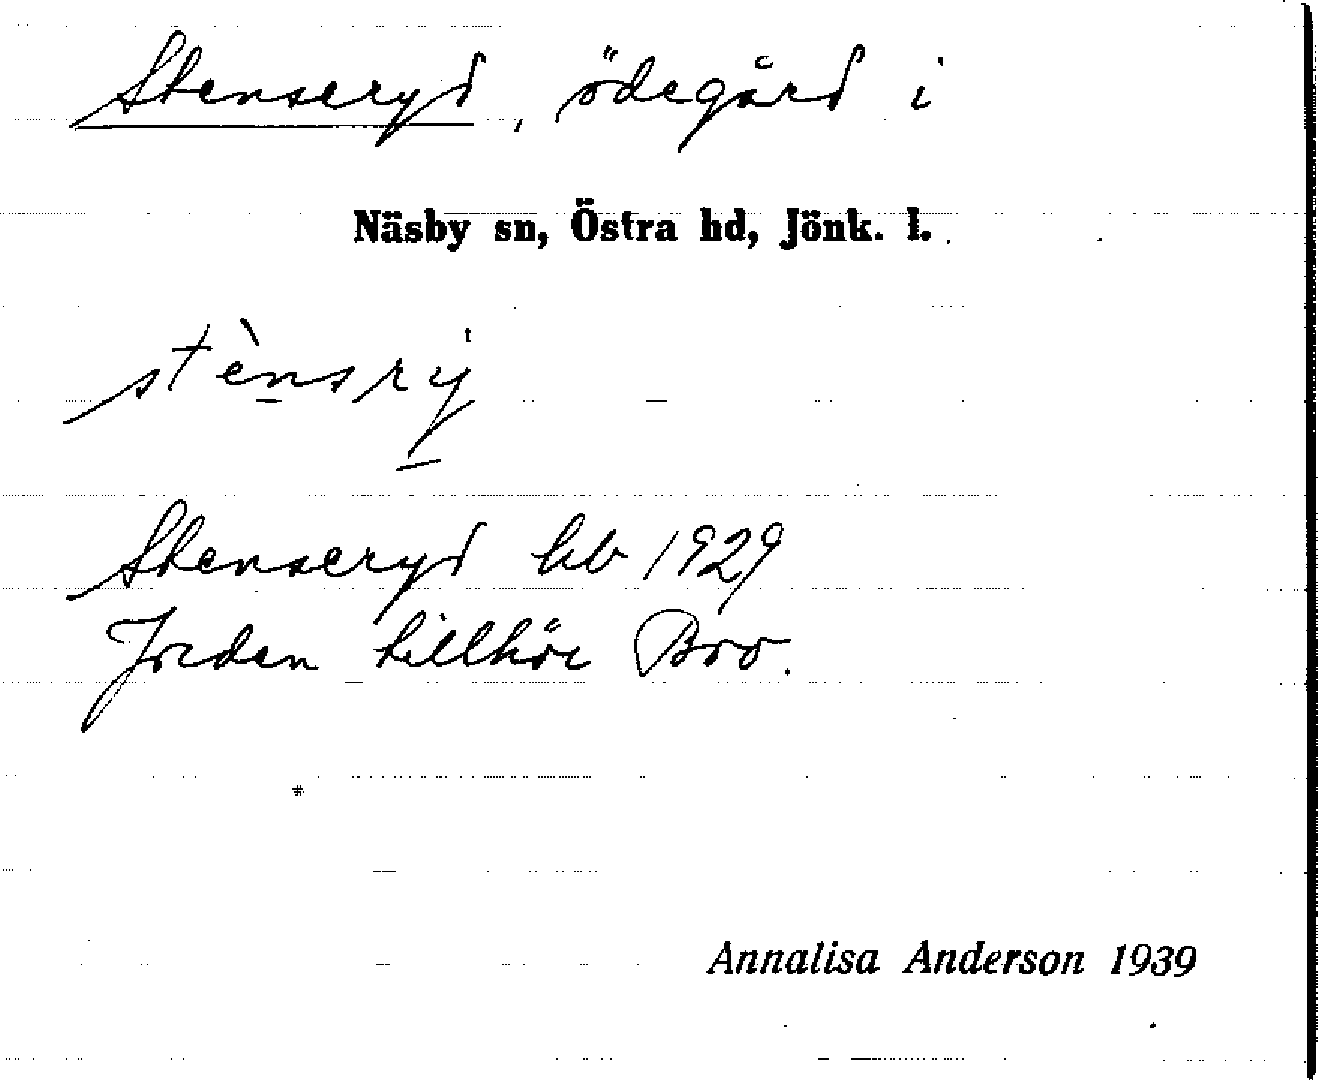 Stenseryd, ödegård i
Näsby sn, Östra hd, Jönk. l.
stènsrý
Stenseryd hb 1929
Jorden tillhör Bro.
Annalisa Anderson 1939